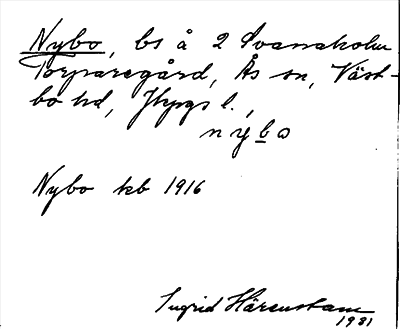 Nybo, bs å 2 Svansholm
Torparegård, Ås sn, Väst-
bo hd, Jkpgs l.,
nỳbo
Nybo kb 1916
Ingrid Härenstam
1981